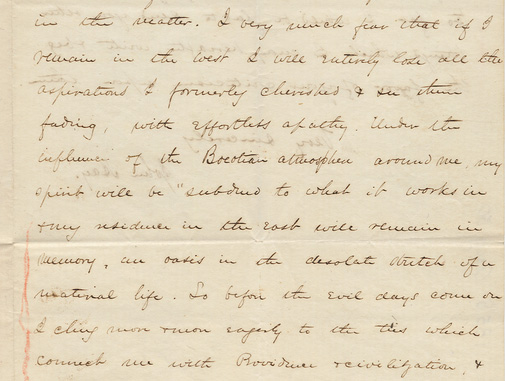 in the matter. I very much fear that if I
remain in the west I will entirely lose all the
aspirations I formerly cherished & see them
fading, with effortless apathy. Under the
influence of the Boeotian atmosphere around me, my
spirit will be "subdued to what it works in
& my residence in the East will remain in
memory, an oasis in the desolate stretch of a
material life. So before the evil days come on
I cling more & more eagerly to the ties which
connect me with Providence & civilization, &